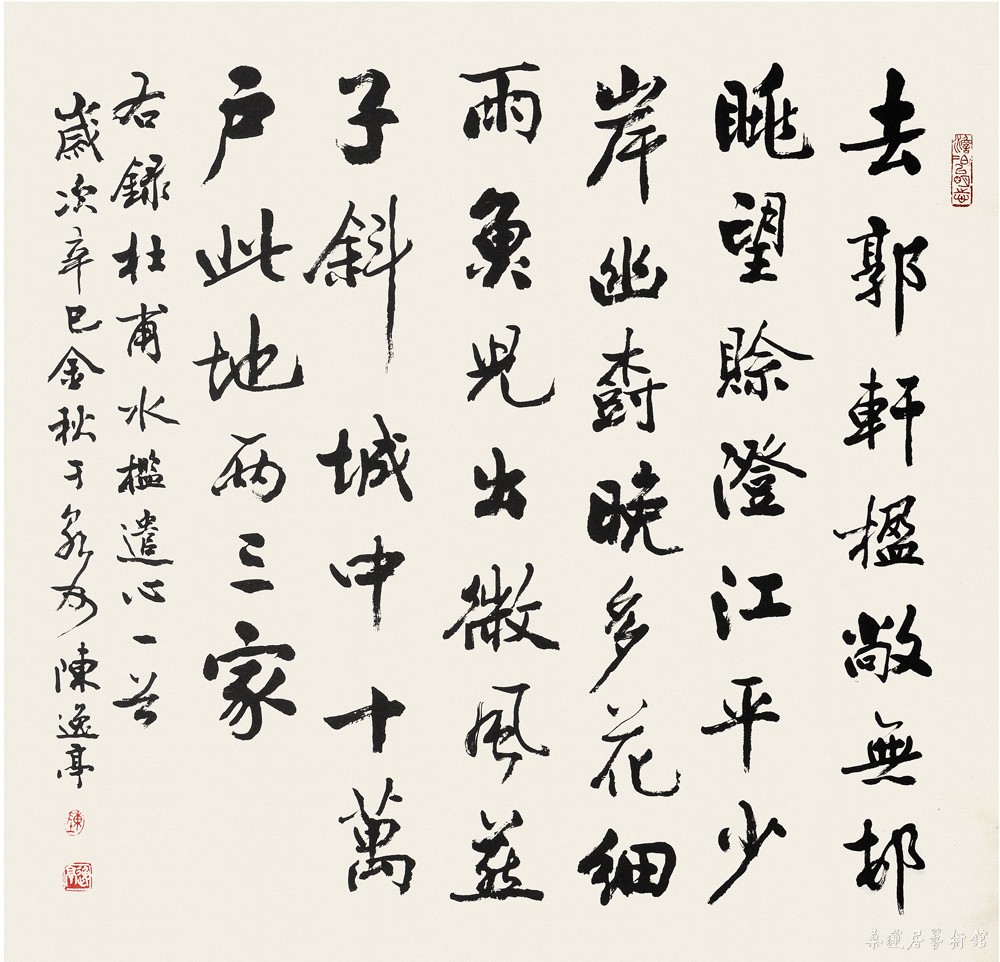 去郭軒楹敞無邨
眺望賒澄江平少
岸幽樹晚多花細
雨魚兒出微風燕
子斜城中十萬
户此地兩三家
右錄杜甫水檻遣心一首
歲次辛巳金秋于泉州陳逸亭
桑蓮居藝術館